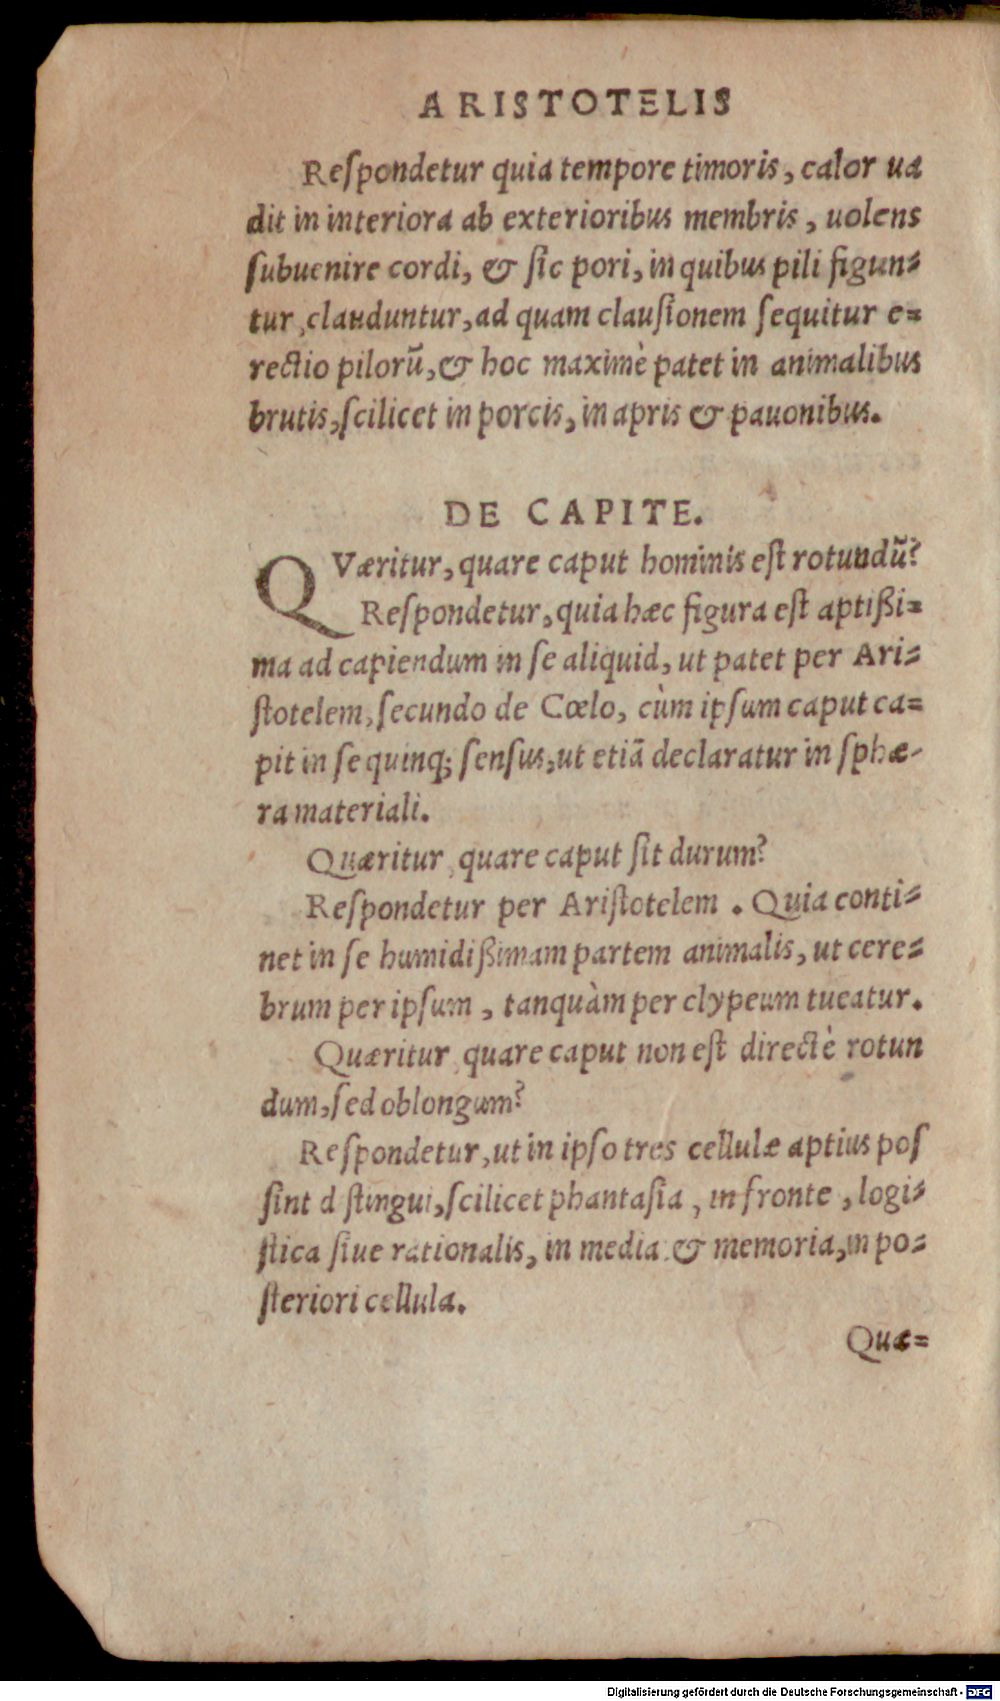 ARISTOTELIS
Reſpondetur quia tempore timoris, calor ua
dit in interiora ab exterioribus membris, uolens
ſubuenire cordi, & ſic pori, in quibus pili figun-
tur, clauduntur, ad quam clauſionem ſequitur e-
rectio pilorũ, & hoc maximè patet in animalibus
brutis, ſcilicet in porcis, in apris & pauonibus.
DE CAPITE.
QVæritur, quare caput hominis eſt rotundũ?
Reſpondetur, quia hæc figura eſt aptißi-
ma ad capiendum in ſe aliquid, ut patet per Ari-
ſtotelem, ſecundo de Cœlo, cùm ipſum caput ca-
pit in ſe quinq; ſenſus, ut etiã declaratur in ſphæ-
ra materiali.
Quæritur, quare caput ſit durum?
Reſpondetur per Ariſtotelem. Quia conti-
net in ſe humidißimam partem animalis, ut cere-
brum per ipſum, tanquàm per clypeum tueatur.
Quæritur, quare caput non eſt directè rotun
dum, ſed oblongum?
Reſpondetur, ut in ipſo tres cellulæ aptius poſ
ſint dſtingui, ſcilicet phantaſia, in fronte, logi-
ſtica ſiue rationalis, in media & memoria, in po-
ſteriori cellula.
Quæ-
Digitalisierung gefördert durch die Deutsche Forschungsgemeinschaft - DFG